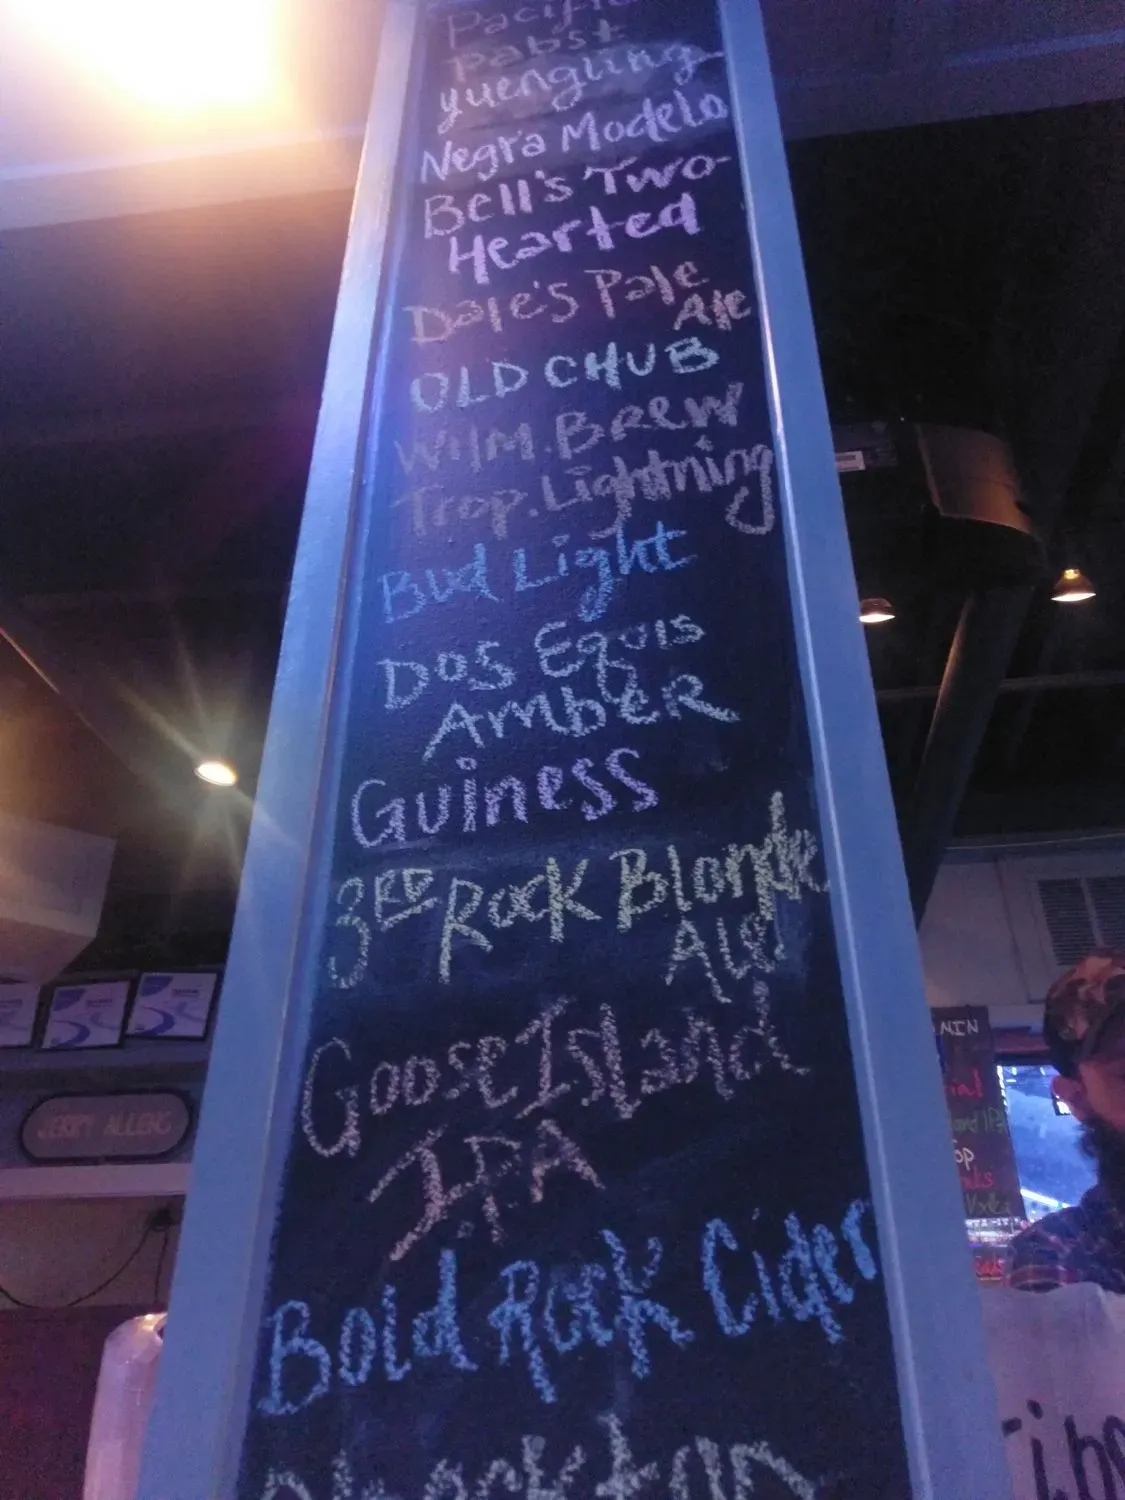 Pacific
Pabst
yuengling
Negra Modelo
Bell's Two-
Hearted
Dale's Pale
Ale
OLD CHUB
Wilm. Brew
Trop. Lightning
Bud Light
Dos Equis
AmbeR
Guiness
3RD Rock Blonde
Ale
Goose Island
IPA
Bold Rock Cider
JERRY ALLENS